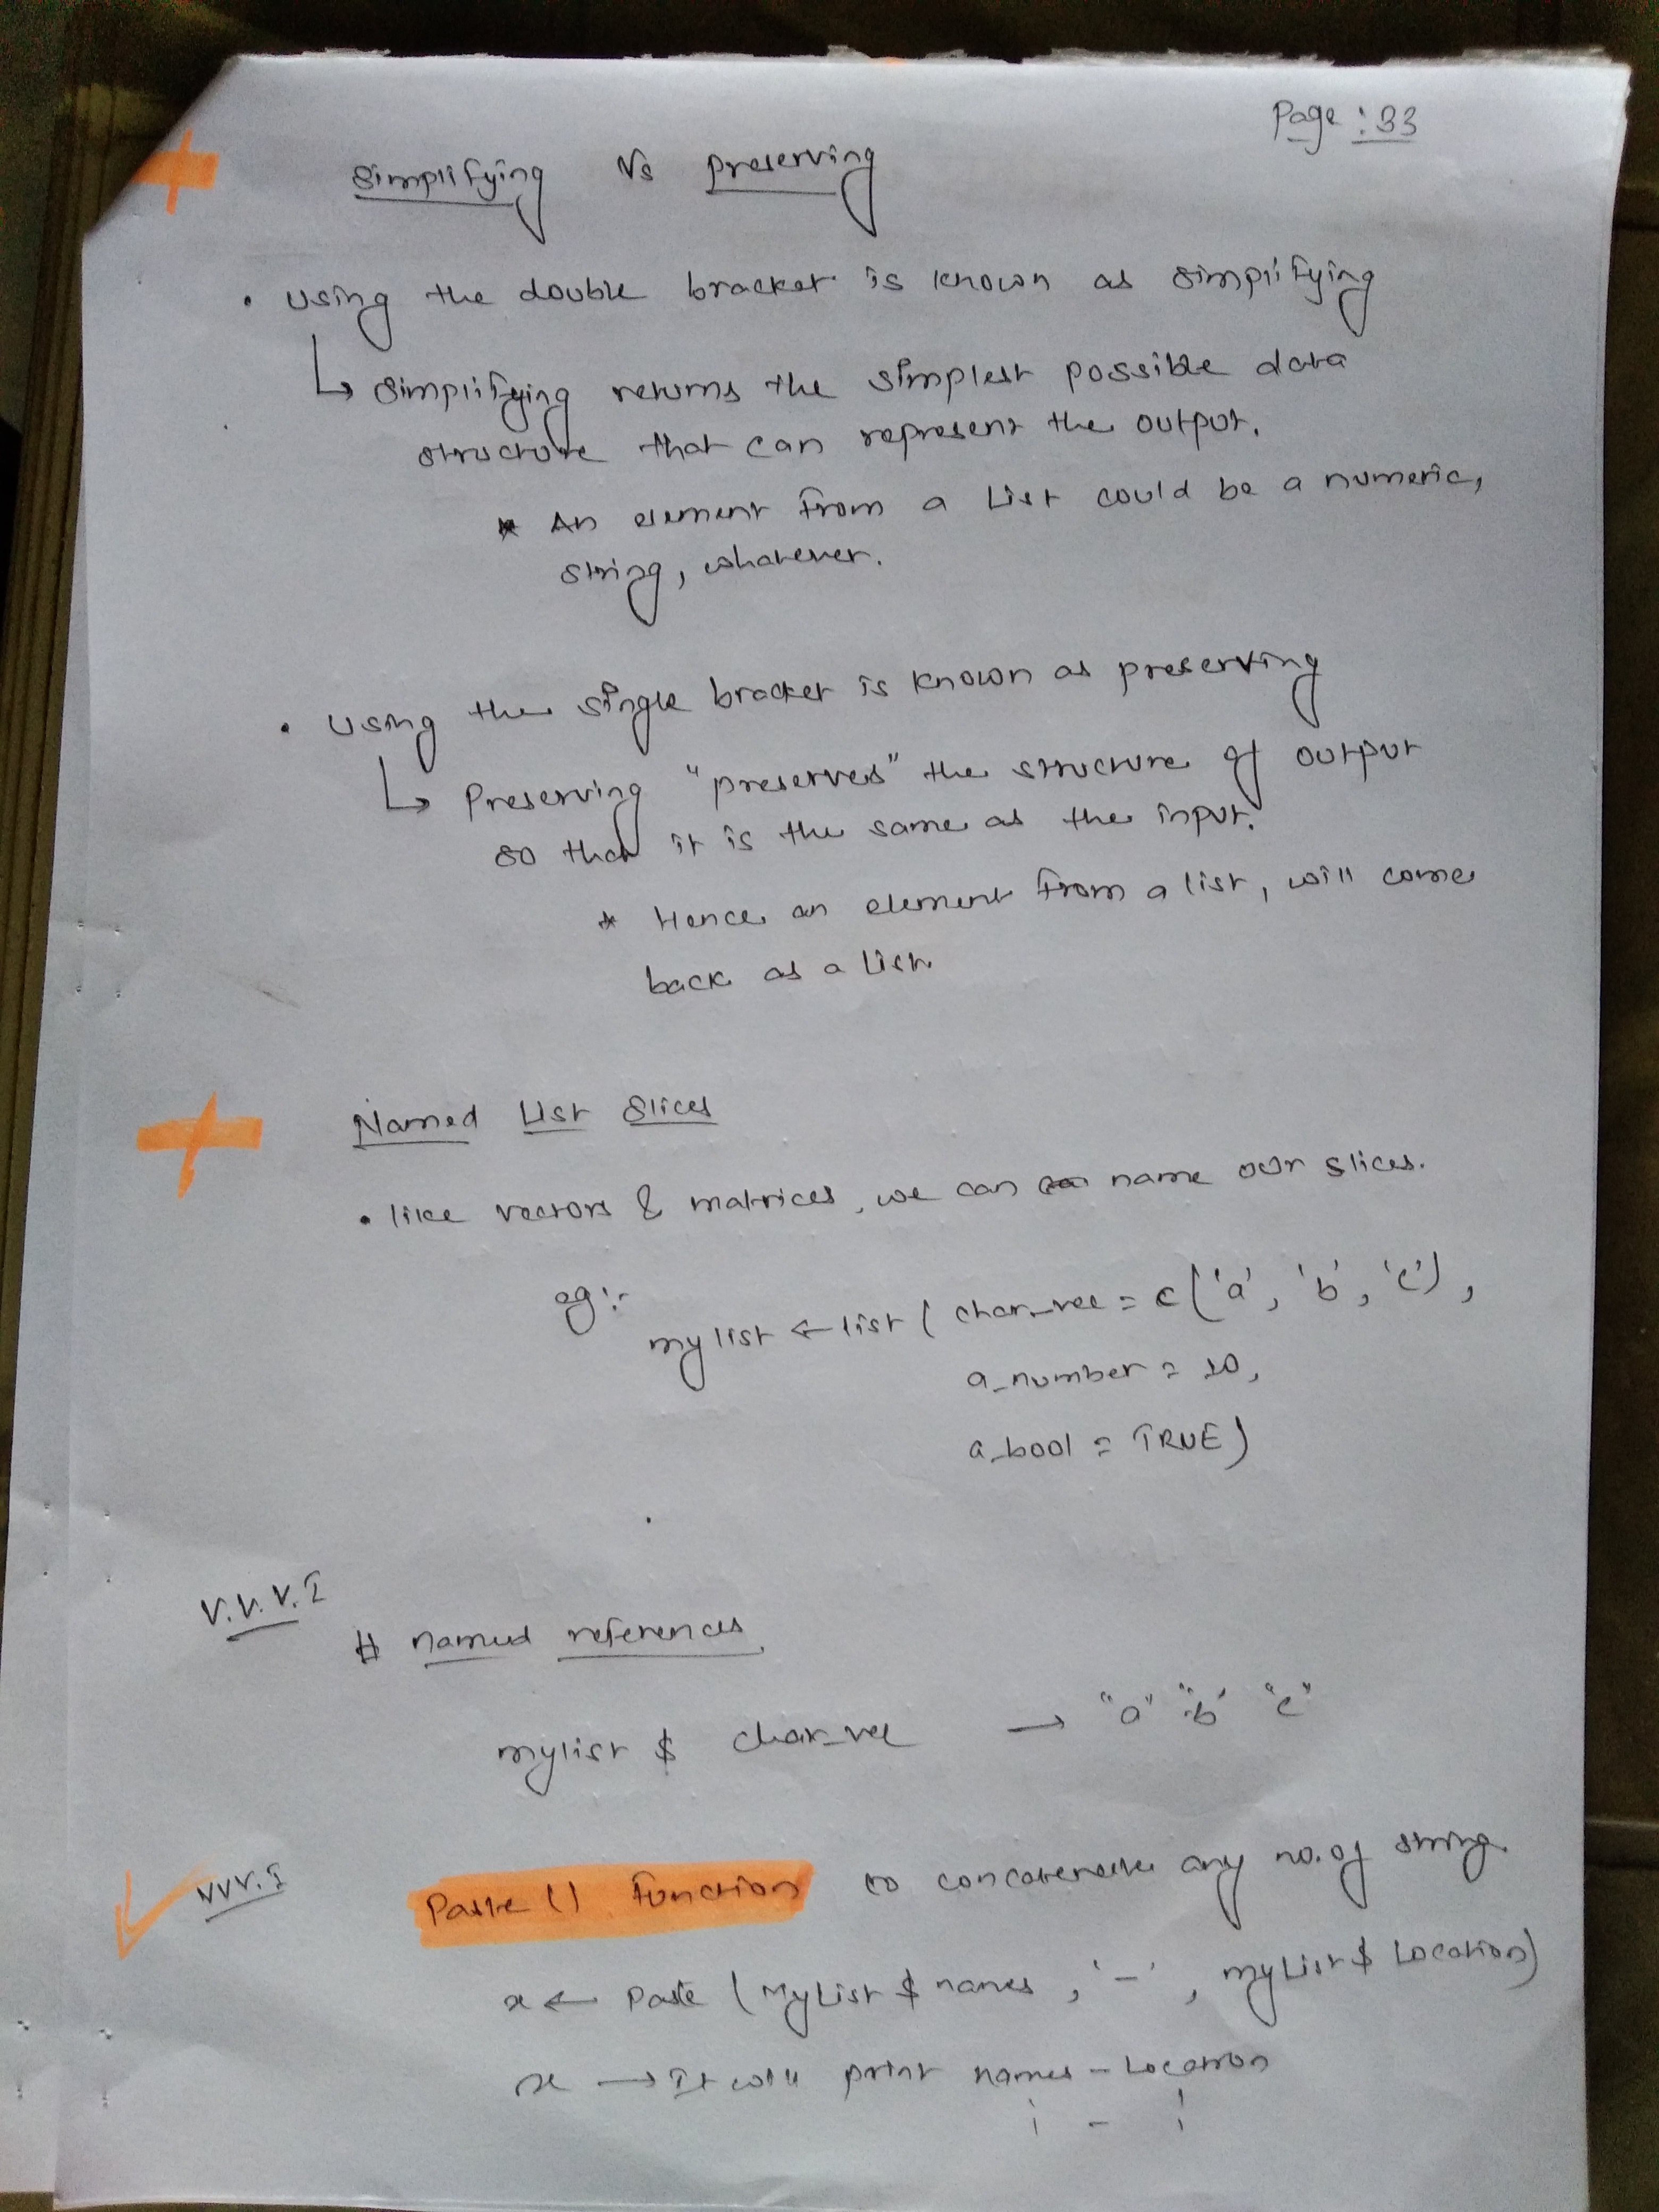 Page : 33
Simplifying Vs Preserving
• Using the double bracket is known as simplifying
↳ Simplifying returns the simplest possible data
structure that can represent the output.
* An element from a List could be a numeric,
string, whatever.
• Using the single bracket is known as preserving
↳ Preserving "preserves" the structure of output
so that it is the same as the input.
* Hence an element from a list, will come
back as a list.
Named List Slices
• like vectors & matrices, we can name our slices.
eg:-
mylist ← list ( char_vec = c('a', 'b', 'c'),
a_number = 10,
a_bool = TRUE)
V.V.V.I
# named references
mylist $ char_vec → "a" "b" "c"
VVV.I
Paste () function to concatenate any no. of string.
x ← Paste (MyList $ names, '-', myList $ Location)
x → It will print names - Location
¦ - ¦